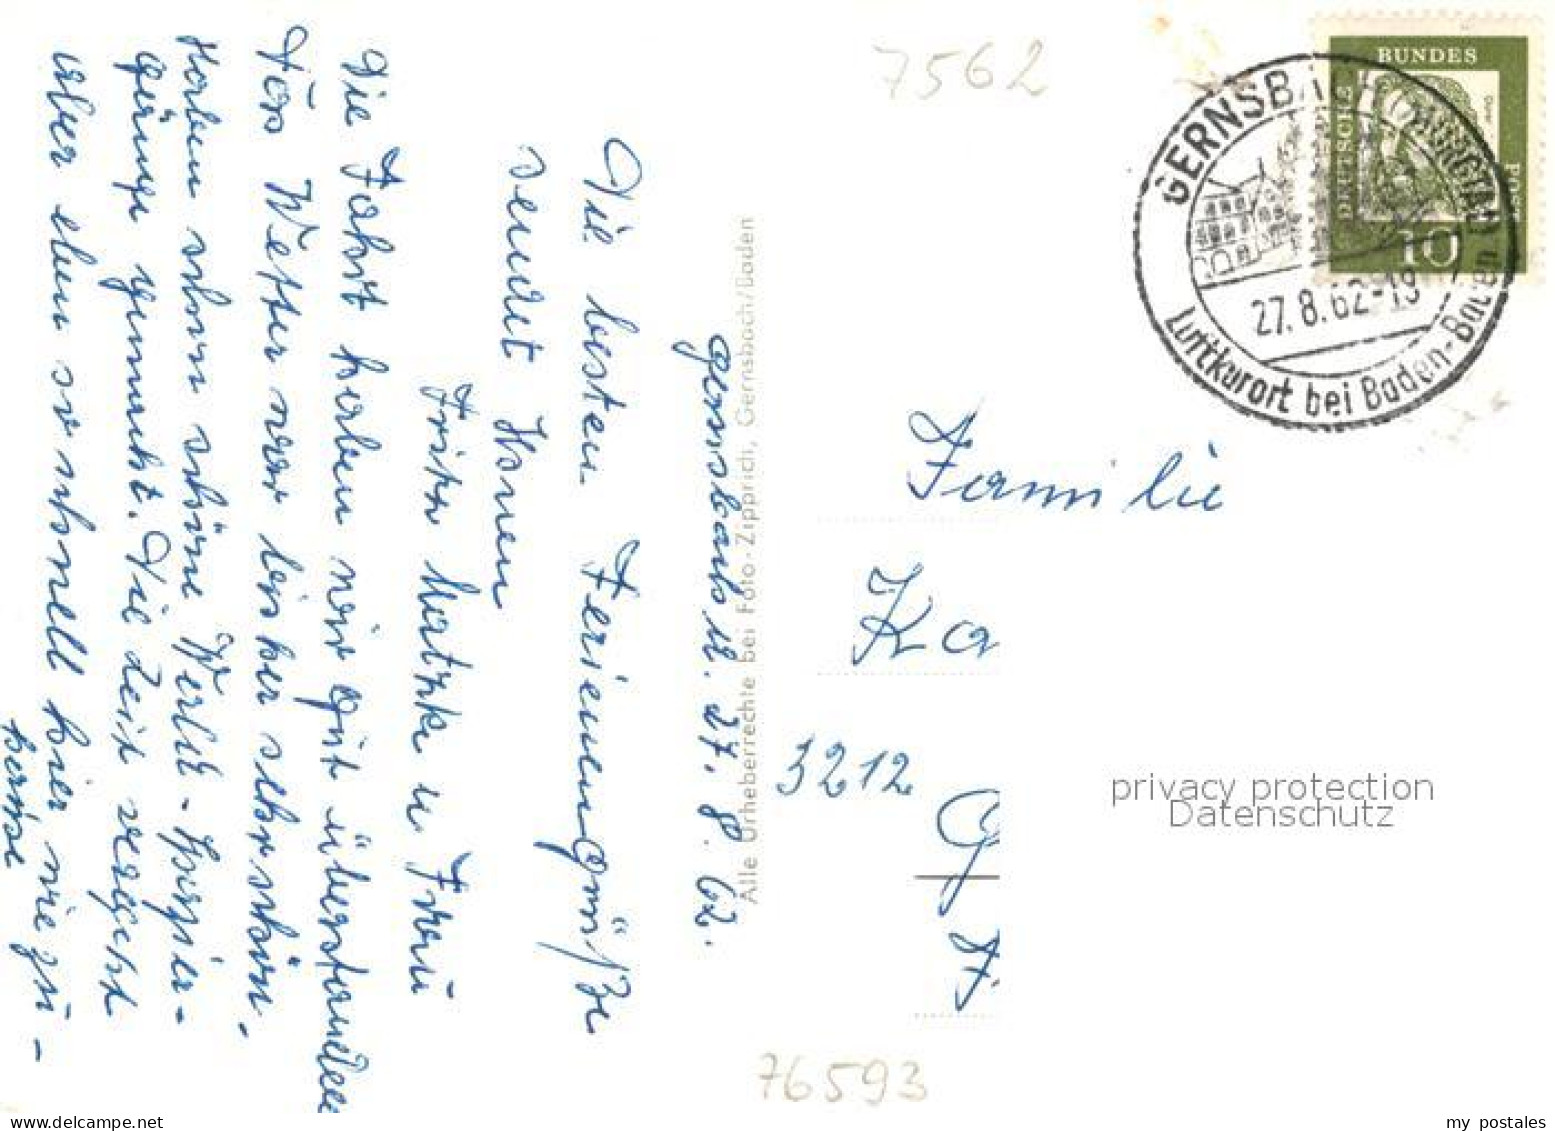 Gernsbach d. 27. 8. 62.
Die besten Feriengrüße
sendet Ihnen
Fritz u. Frau
Die Fahrt haben wir gut überstanden
Das Wetter war bisher sehr schön.
Haben schon schöne Wald-Spazier-
gänge gemacht. Die Zeit vergeht
aber eben so schnell hier wie zu-
hause
Alle Urheberrechte bei Foto-Zipprich, Gernsbach/Baden
7562
BUNDES
DEUTSCHE
POST
10
GERNSBACH (MURGTAL)
27.8.62-19
Luftkurort bei Baden-Baden
Familie
Ka
3212
G
76593
privacy protection
Datenschutz
my postales